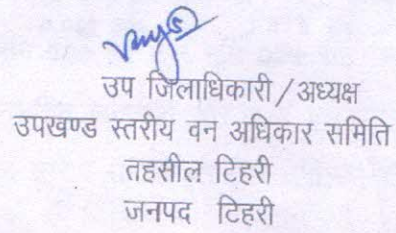 उप जिलाधिकारी / अध्यक्ष
उपखण्ड स्तरीय वन अधिकार समिति
तहसील टिहरी
जनपद टिहरी